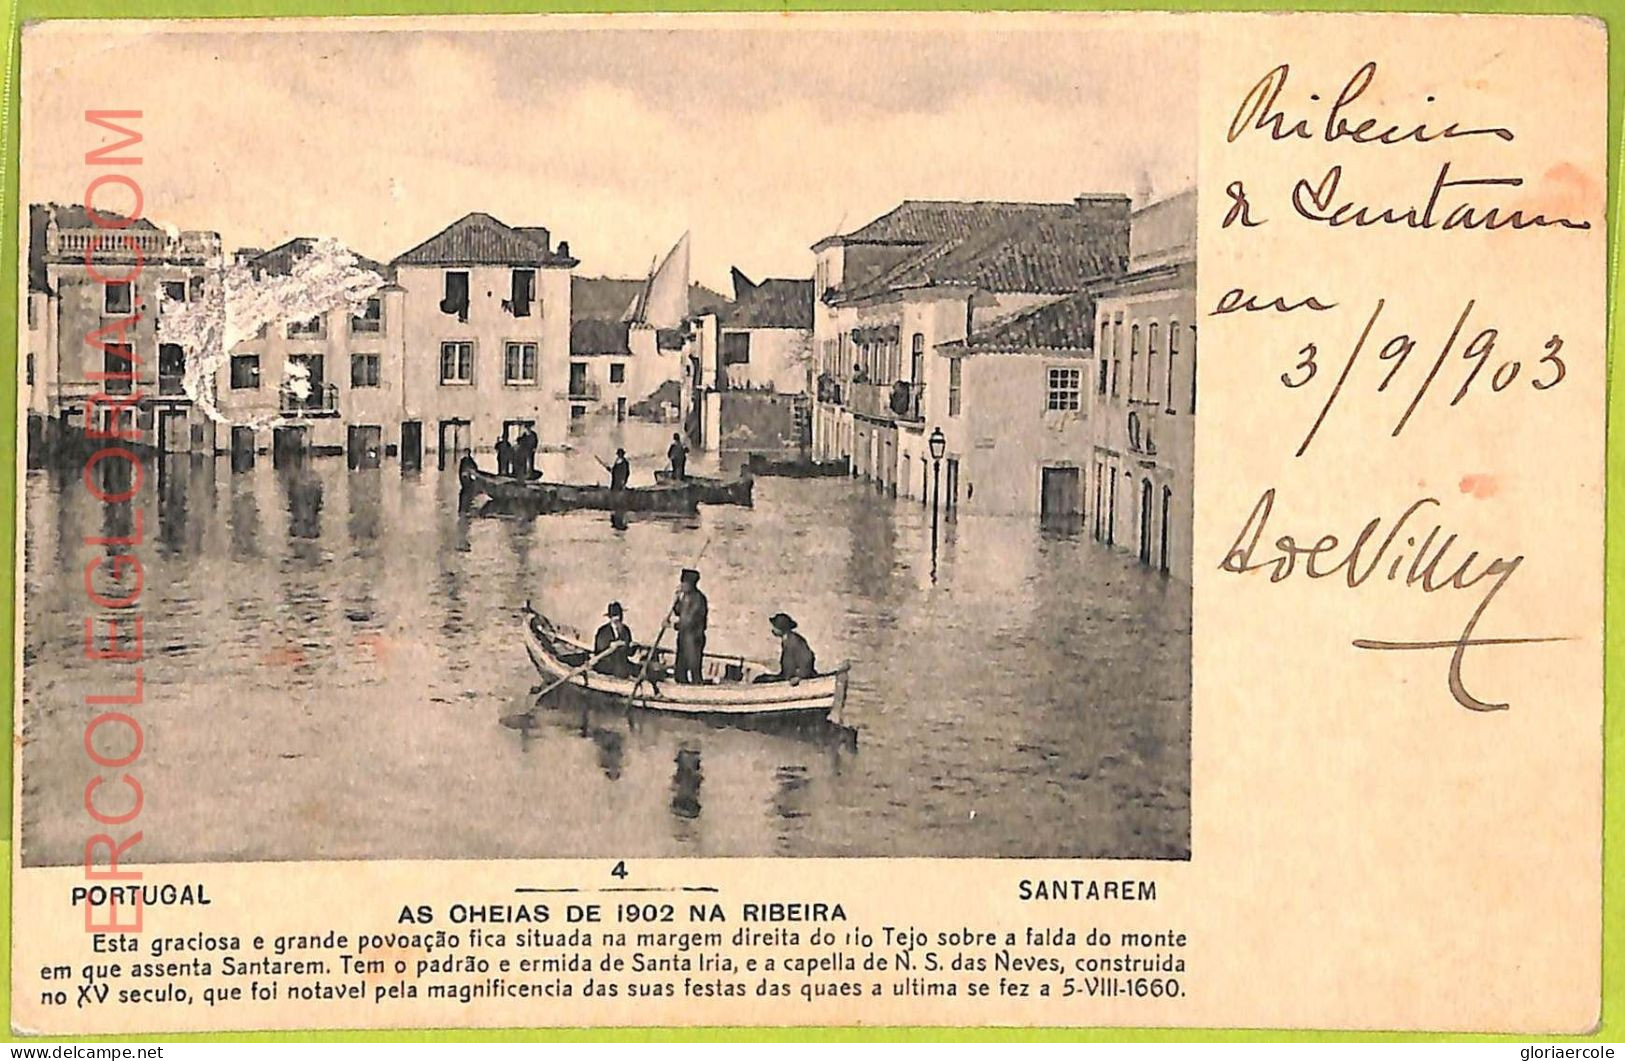 ERCOLEGLORIA.COM
Ribeira
de Santarem
em
3/9/903
4
PORTUGAL
SANTAREM
AS CHEIAS DE 1902 NA RIBEIRA
Esta graciosa e grande povoação fica situada na margem direita do rio Tejo sobre a falda do monte
em que assenta Santarem. Tem o padrão e ermida de Santa Iria, e a capella de N. S. das Neves, construida
no XV seculo, que foi notavel pela magnificencia das suas festas das quaes a ultima se fez a 5-VIII-1660.
delcampe.net
gloriaercole